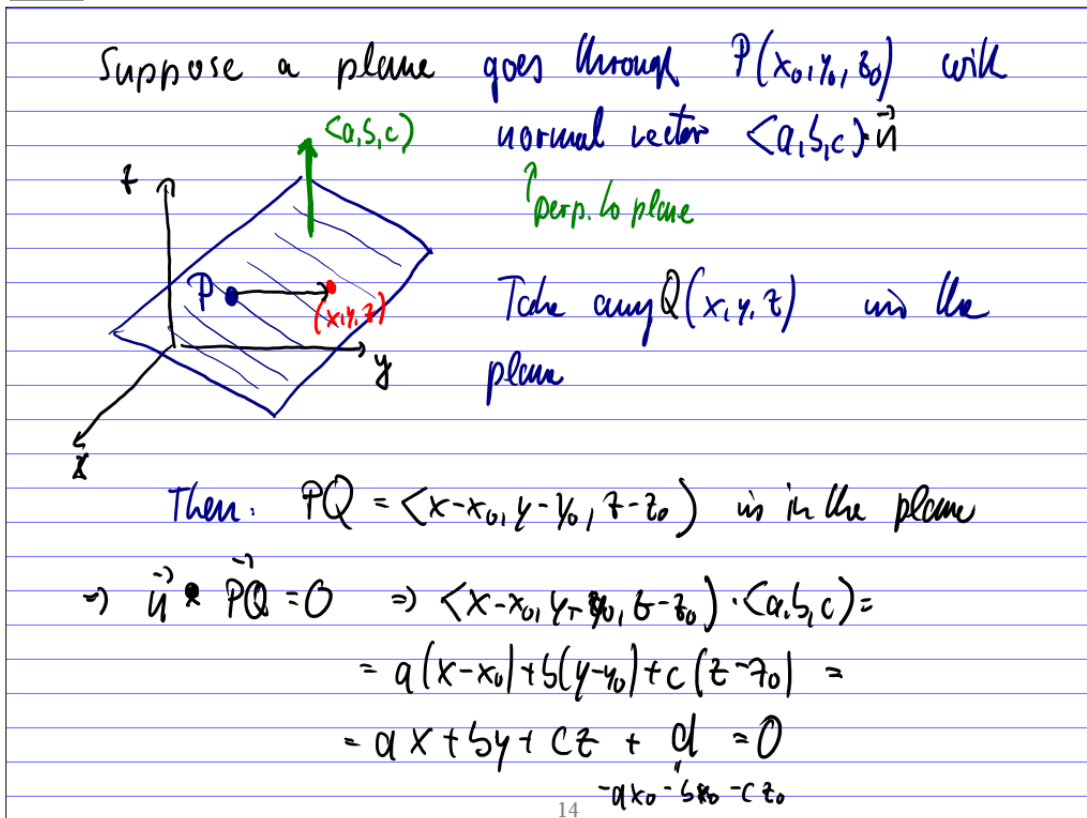 Suppose a plane goes through P(x₀, y₀, z₀) with
normal vector <a, b, c> = n⃗
<a, b, c>
↑ perp. to plane
z
P
(x, y, z)
y
x
Take any Q(x, y, z) in the
plane
Then: PQ = <x-x₀, y-y₀, z-z₀> is in the plane
⇒ n⃗ • PQ⃗ = 0 ⇒ <x-x₀, y-y₀, z-z₀> · <a, b, c> =
= a(x-x₀) + b(y-y₀) + c(z-z₀) =
= ax + by + cz + d = 0
"
-ax₀ - bx₀ - cz₀
14